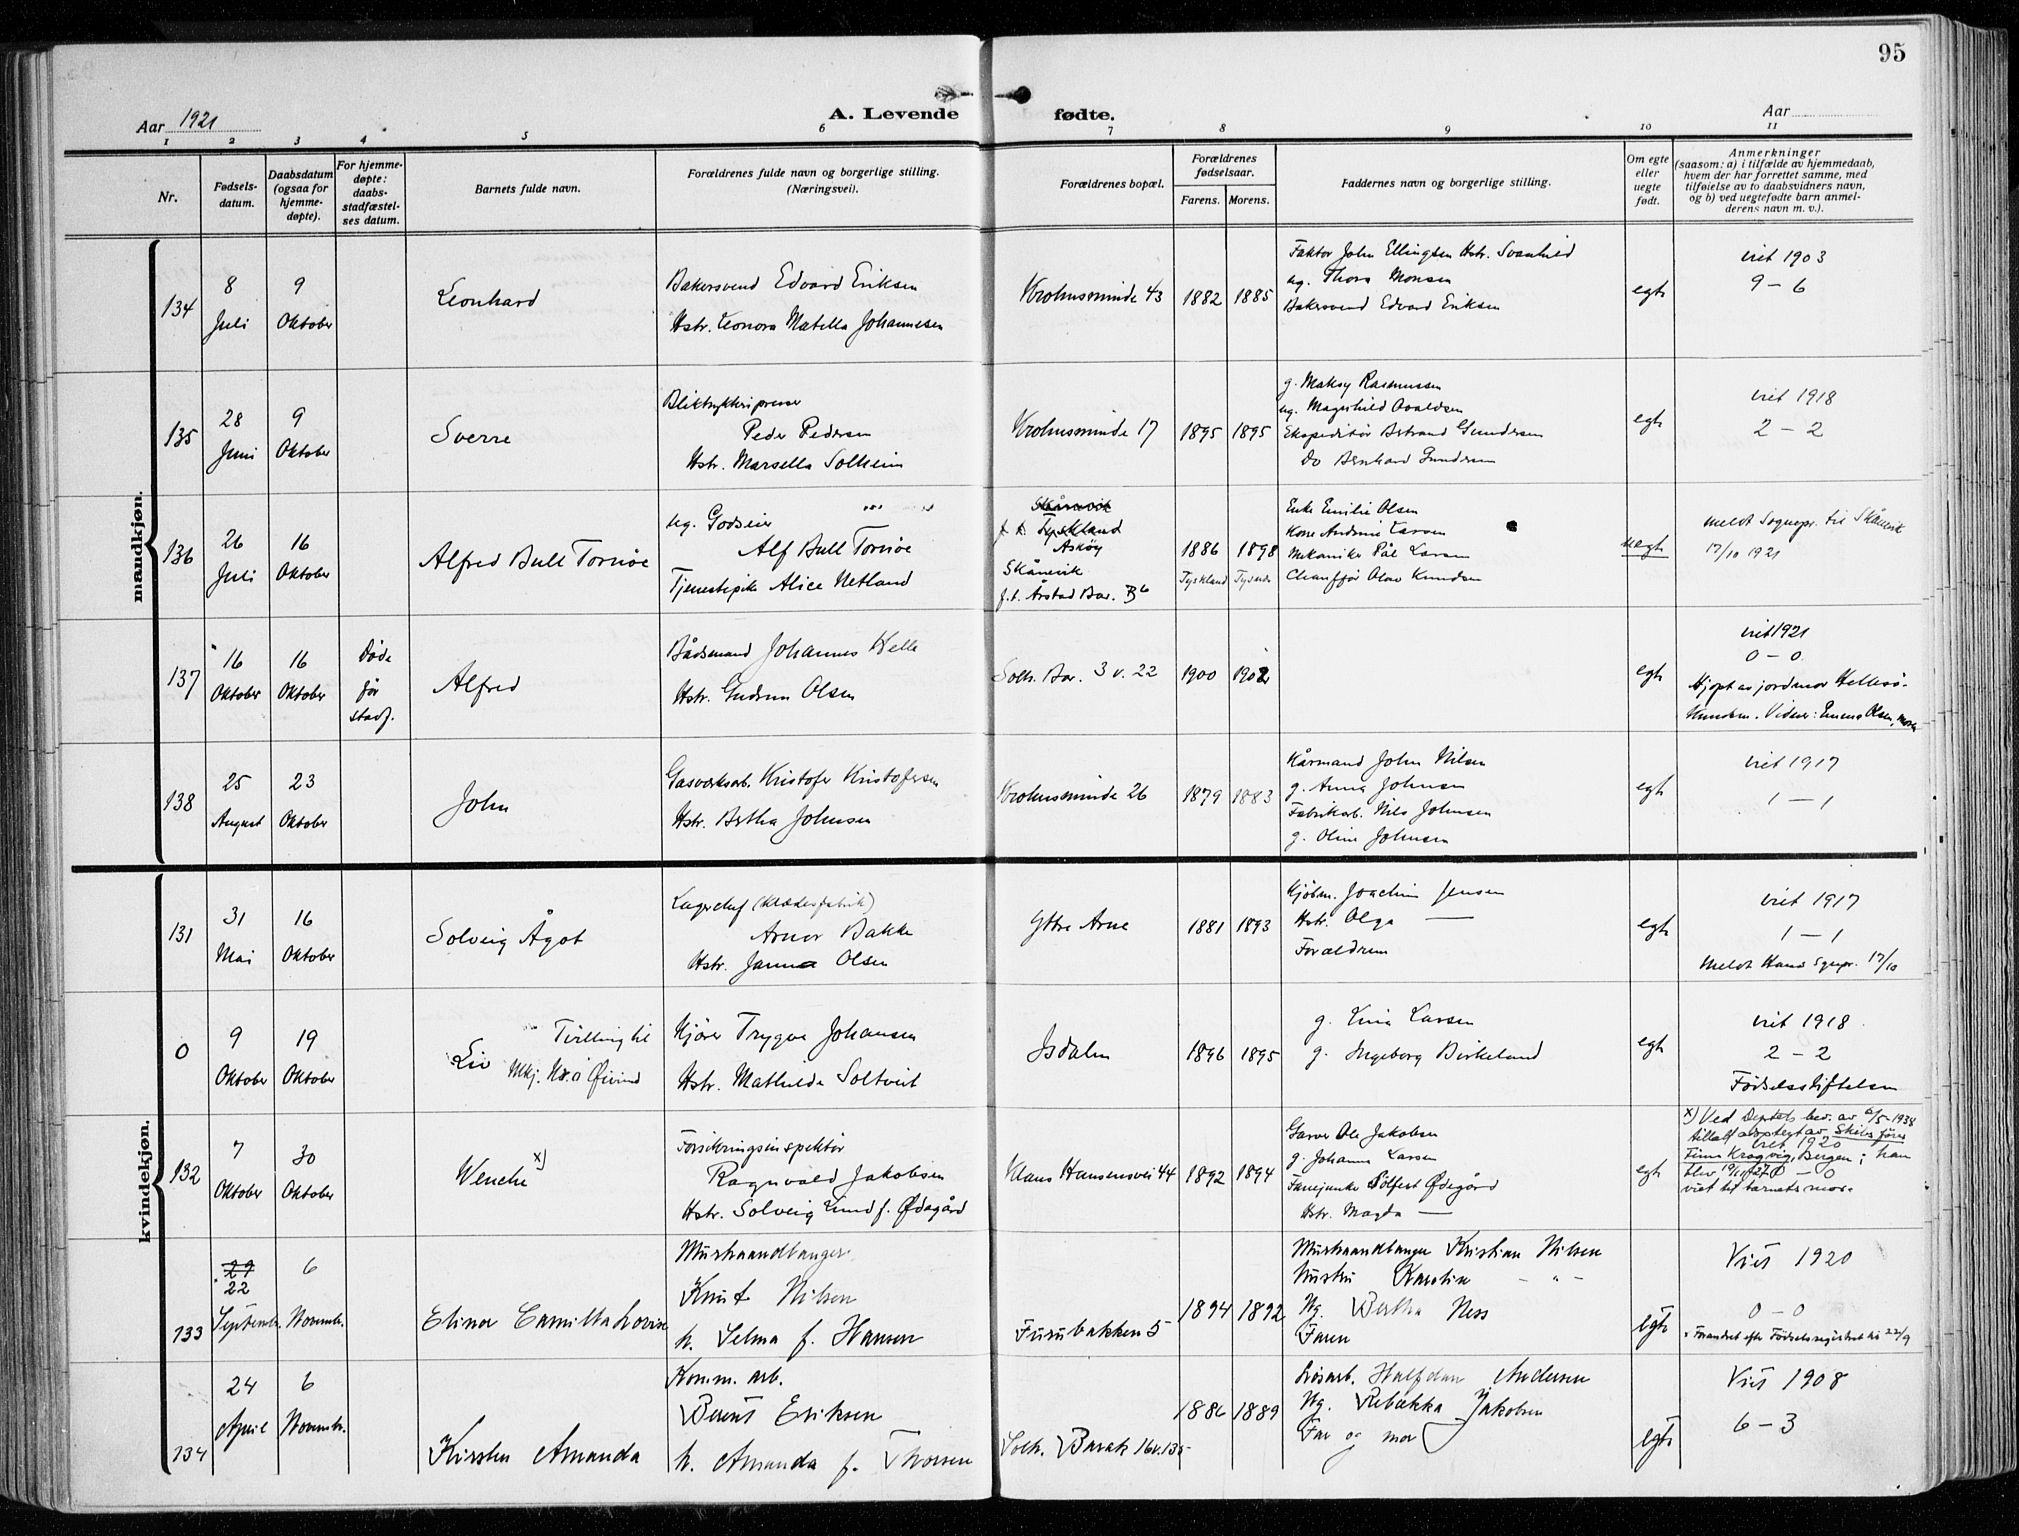 95
Aar 1921
A. Levende fødte.
Aar
1 2 3 4 5 6 7 8 9 10 11
Nr.
Fødsels-
datum.
Daabsdatum
(ogsaa for
hjemme-
døpte).
For hjemme-
døpte:
daabs-
stadfæstel-
ses datum.
Barnets fulde navn.
Forældrenes fulde navn og borgerlige stilling.
(Næringsvei).
Forældrenes bopæl.
Forældrenes
fødselsaar.
Farens. Morens.
Faddernes navn og borgerlige stilling.
Om egte
eller
uegte
født.
Anmerkninger
(saasom: a) i tilfælde av hjemmedaab,
hvem der har forrettet samme, med
tilføielse av to daabsvidners navn,
og b) ved uegtefødte barn anmel-
derens navn m. v.).
mandkjøn.
134
8
Juli
9
Oktober
Leonhard
Bakersvend Edvard Eriksen
Hstr. Leonora Matella Johannesen
Krohnsminde 43
1882 1885
Faktor John Ellingsen Hstr. Svanhild
ug. Thora Monsen
Bakersvend Edvard Eriksen
egte
viet 1903
9 – 6
135
28
Juni
9
Oktober
Sverre
Bliktrykkeripresser
Peder Pedersen
Hstr. Marsella Solheim
Krohnsminde 17
1895 1895
g. Maksy Rasmussen
ug. Magnhild Osvaldsen
Ekspeditør Bertrand Gundersen
Do Bernhard Gundersen
egte
viet 1918
2 – 2
136
26
Juli
16
Oktober
Alfred Bull Tornøe
ug. Godseier
Alf Bull Tornøe
Tjenestepike Alice Netland
Skånevik
f. t. Tyskland
Askøy
Skånevik
f. t. Årstad Bar. B6
1886 1898
Tyskland Tysnes
Enke Emilie Olsen
Kone Andrine Larsen
Mekaniker Pål Larsen
Chauffør Olav Knudsen
uegte
meldt Sognepr. til Skånevik
17/10 1921
137
16
Oktober
16
Oktober
Døde
før
stadf.
Alfred
Bådsmand Johannes Helle
Hstr. Gudrun Olsen
Solh. Bar. 3 v. 22
1900 1902
egte
viet 1921
0 – 0
Hjdpt av jordmor Hellesö-
Knudsen. Vidner: Emma Olsen, mor
138
25
August
23
Oktober
John
Gasværksarb. Kristofer Kristofersen
Hstr. Bertha Johnsen
Krohnsminde 26
1879 1883
Kårmand John Nilsen
g. Anna Johnsen
Fabrikarb. Nils Johnsen
g. Oline Johnsen
egte
viet 1917
1 – 1
kvindekjøn.
131
31
Mai
16
Oktober
Solveig Ågot
Lagerchef (Klædesfabrik)
Arnor Bakke
Hstr. Janna Olsen
Ytre Arne
1881 1893
Kjøbm. Joachim Jensen
Hstr. Olga —
Forældrene
egte
viet 1917
1 – 1
Meldt Haus Sgnpr. 17/10
0
9
Oktober
19
Oktober
Liv
Tvilling til
Mkj. No. 0 Øivind
Kjører Trygve Johansen
Hstr. Mathilde Soltveit
Isdalen
1896 1895
g. Lina Larsen
g. Ingeborg Birkeland
egte
viet 1918
2 – 2
Fødselsstiftelsen
132
7
Oktober
30
Oktober
Wenche x)
Forsikringsinspektør
Ragnvald Jakobsen
Hstr. Solveig Lund f. Ødegård
Klaus Hansensvei 44
1892 1894
Garver Ole Jakobsen
g. Johanna Larsen
Fanejunker Sölfest Ødegård
Hstr. Magda —
egte
x) Ved Deptets bev. av 6/5-1938
tillatt adoptert av Skibsfører
viet 1920
Finn Kragvig, Bergen; han
blev 19/11 1927
0 – 0
viet til barnets mor.
133
29
22
Septembr.
6
Novembr.
Elinor Camilla Lovise
Murhaandlanger
Knut Nilsen
h. Selma f. Hansen
Furubakken 5
1894 1892
Murhaandlanger Kristian Nilsen
Hustru Karoline – " –
Ug. Bertha Ness
Faren
egte
Viet 1920
0 – 0
Forandret efter Fødselsregistret til 22/9
134
24
April
6
Novembr.
Kirsten Amanda
Komm. arb.
Bernt Eriksen
h. Amanda f. Thorsen
Solh. Barak 16 v. 135
1886 1889
Løsarb. Halfdan Andersen
Ug. Rebekka Jakobsen
Far og mor
egte
Viet 1908
6 – 3